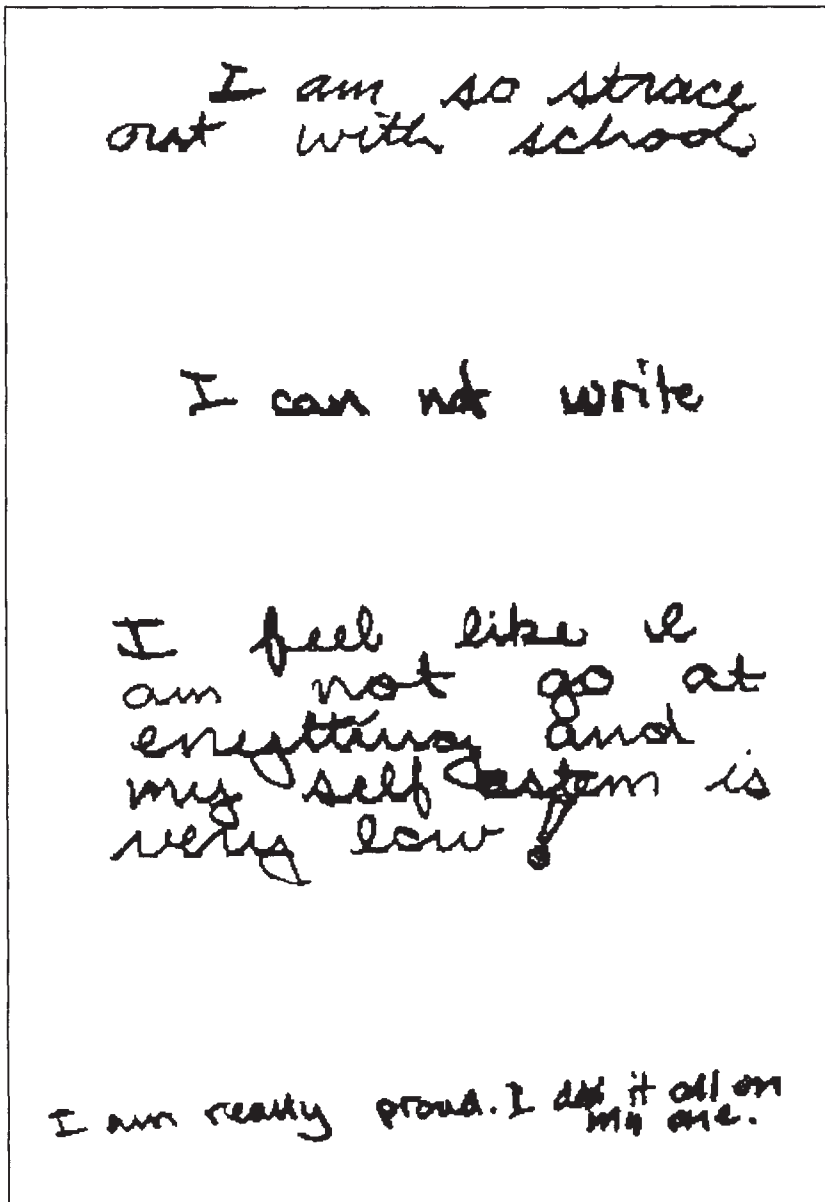 I am so strace
out with school
I can not write
I feel like I
am not go at
enything and
my self estem is
very low!
I am really proud. I did it all on
my one.